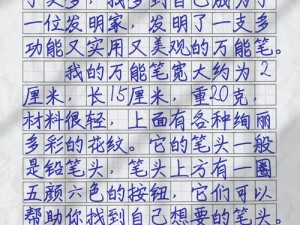 了头梦，我梦到自己成为了
一位发明家，发明了一支多
功能又实用又美观的万能笔。
我的万能笔宽大约为2
厘米，长15厘米，重20克，
材料很轻，上面有各种绚丽
多彩的花纹。它的笔头一般
是铅笔头，笔头上方有一圈
五颜六色的按钮，它们可以
帮助你找到自己想要的笔头。